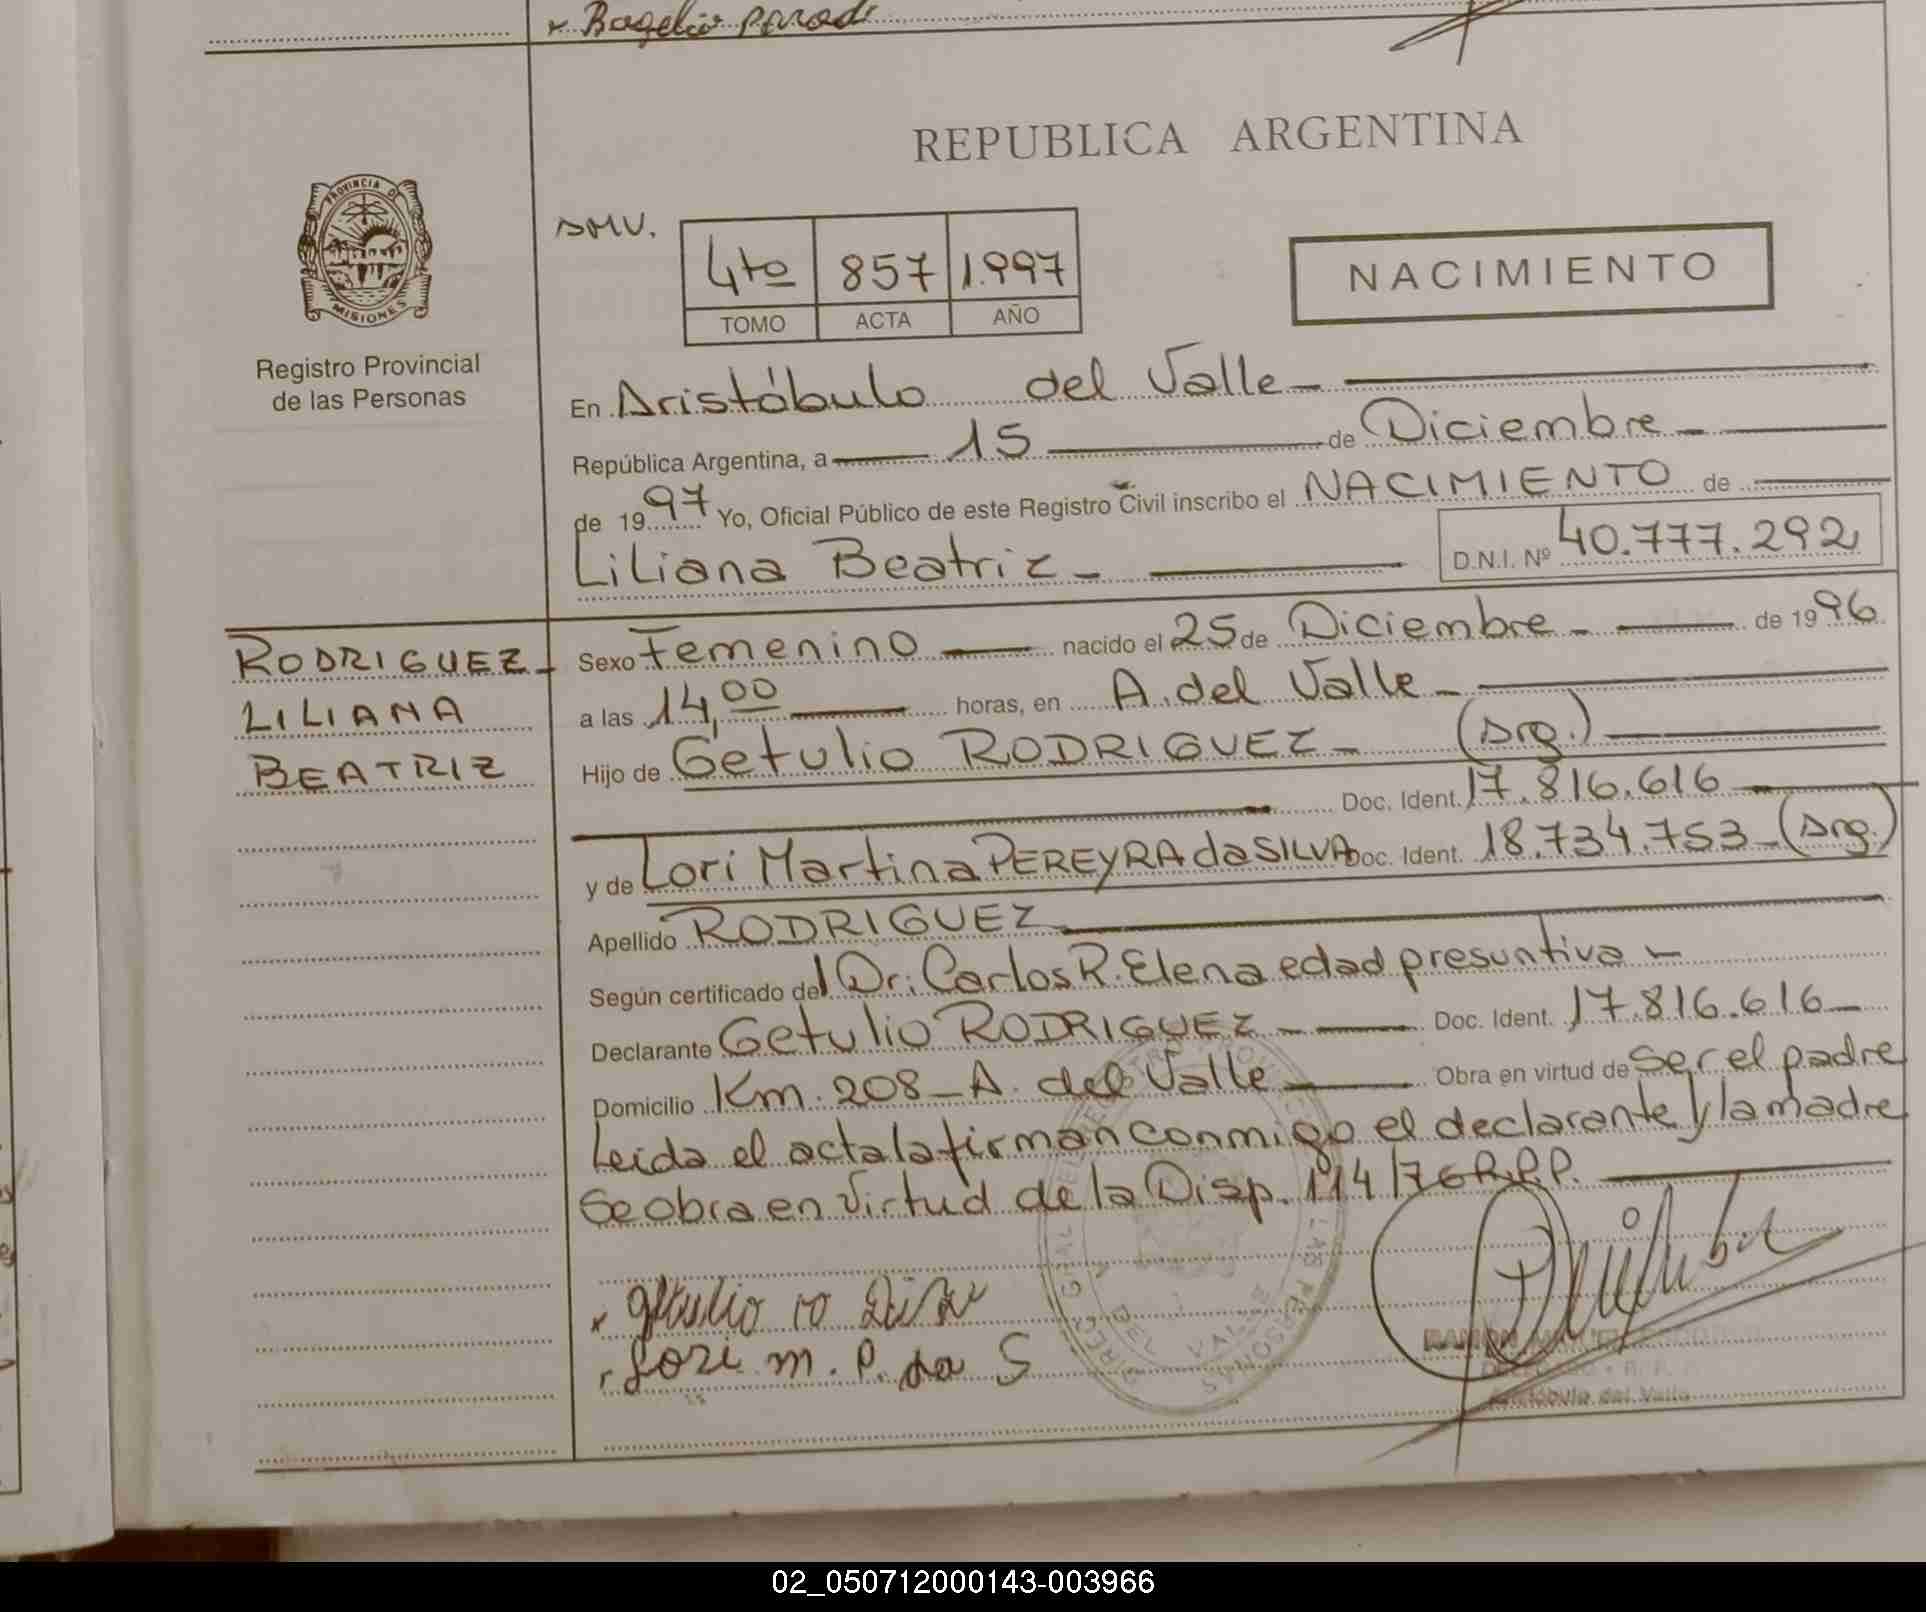 x Rogelio Parodi
REPUBLICA ARGENTINA
PROVINCIA DE
MISIONES
Registro Provincial
de las Personas
DMV.
4to 857 1.997
TOMO ACTA AÑO
NACIMIENTO
En Aristóbulo del Valle -
República Argentina, a 15 de Diciembre -
de 1997 Yo, Oficial Público de este Registro Civil inscribo el NACIMIENTO de
Liliana Beatriz - D.N.I. Nº 40.777.292
RODRIGUEZ -
LILIANA
BEATRIZ
Sexo Femenino nacido el 25 de Diciembre - de 1996
a las 14,00 horas, en A. del Valle -
Hijo de Getulio RODRIGUEZ - (Arg.)
Doc. Ident. 17.816.616
y de Lori Martina PEREYRA da SILVA Doc. Ident. 18.734.753 - (Arg.)
Apellido RODRIGUEZ
Según certificado del Dr: Carlos R. Elena edad presuntiva -
Declarante Getulio RODRIGUEZ - Doc. Ident. 17.816.616 -
Domicilio Km. 208 - A. del Valle Obra en virtud de Ser el padre
Leida el acta la firman conmigo el declarante y la madre
Se obra en virtud de la Disp. 114/76 R.P.P.
x getulio ro
Lori m. P. da S
Aristóbulo del Valle
02_050712000143-003966